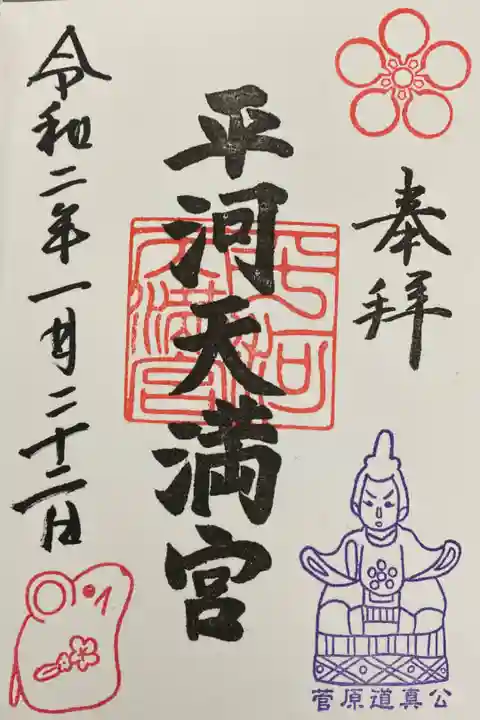 奉拝
平河天満宮
平河
天満宮
令和二年一月二十二日
菅原道真公